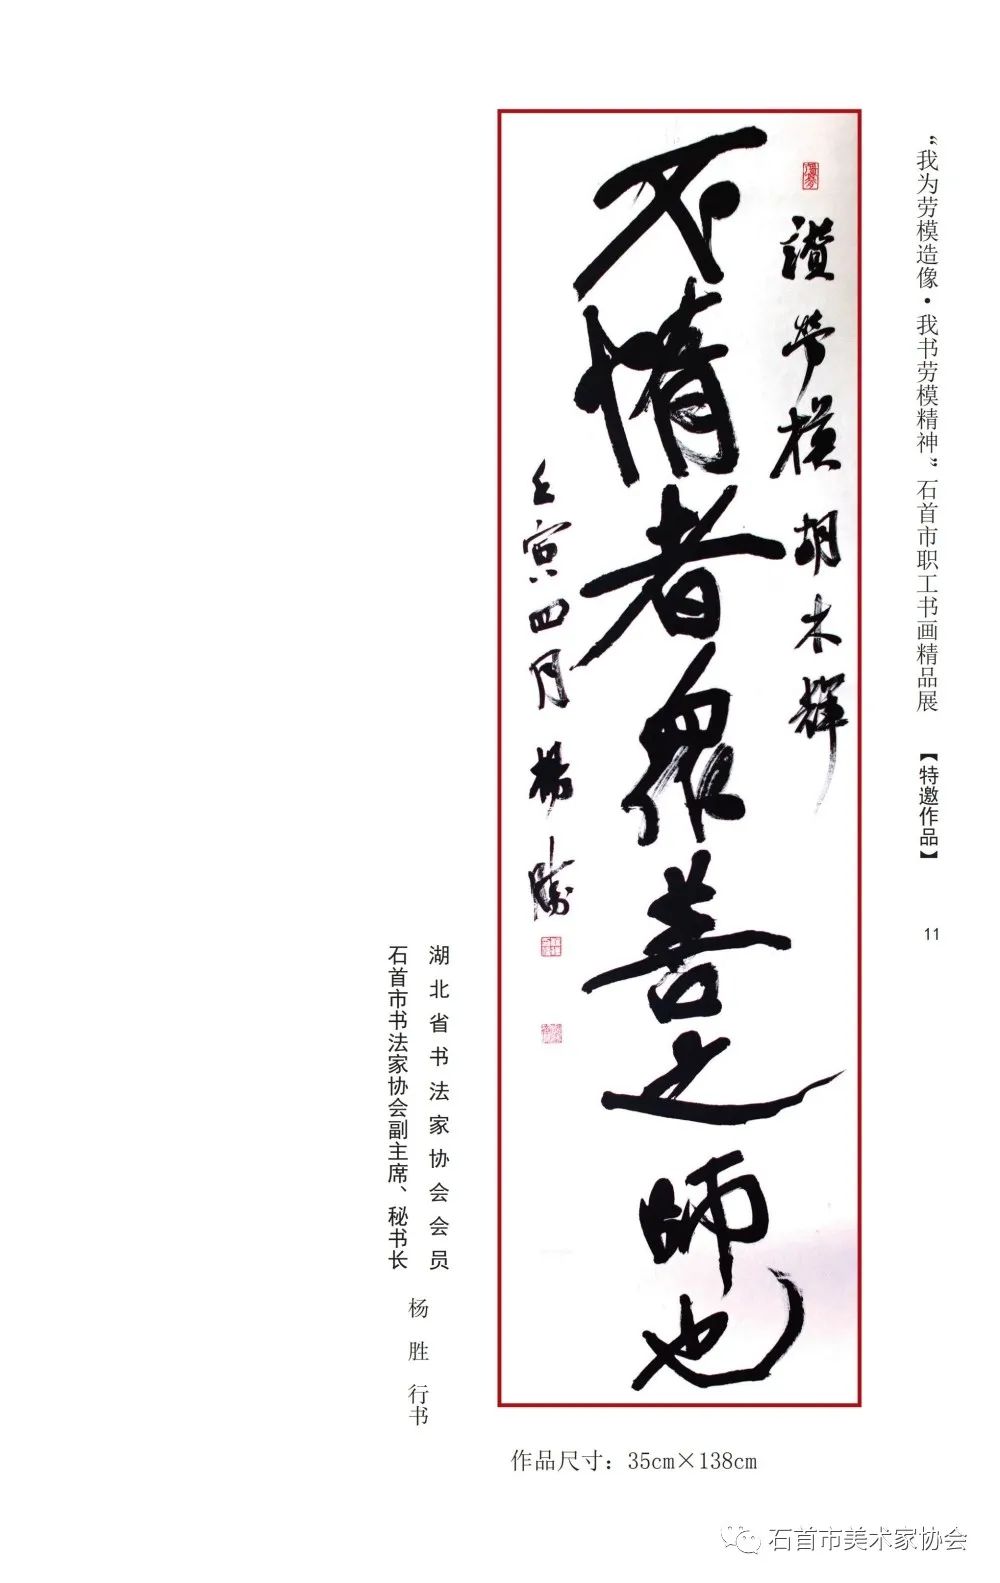 “我为劳模造像·我书劳模精神”石首市职工书画精品展 【特邀作品】
11
讚勞模胡木輝
不惰者眾善之師也
壬寅四月楊勝
湖北省书法家协会会员
石首市书法家协会副主席、秘书长
杨胜 行书
作品尺寸：35cm×138cm
石首市美术家协会